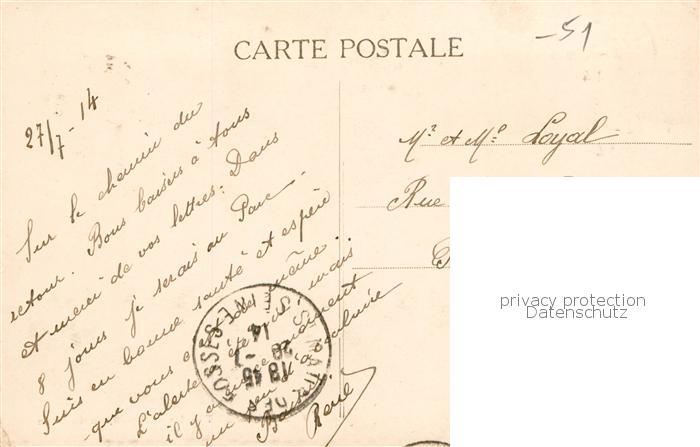 -51
CARTE POSTALE
27/7-14
Sur le chemin du
retour. Bons baisers à tous
et merci de vos lettres. Dans
8 jours je serais au Parc
Suis en bonne santé et espère
que vous de même.
L'alerte été mais
il y a vraiment
un peu calmée
Baisers
René
Mr et Me Loyal
Rue
privacy protection
Datenschutz
FOSSES
18 45
28 -7
14